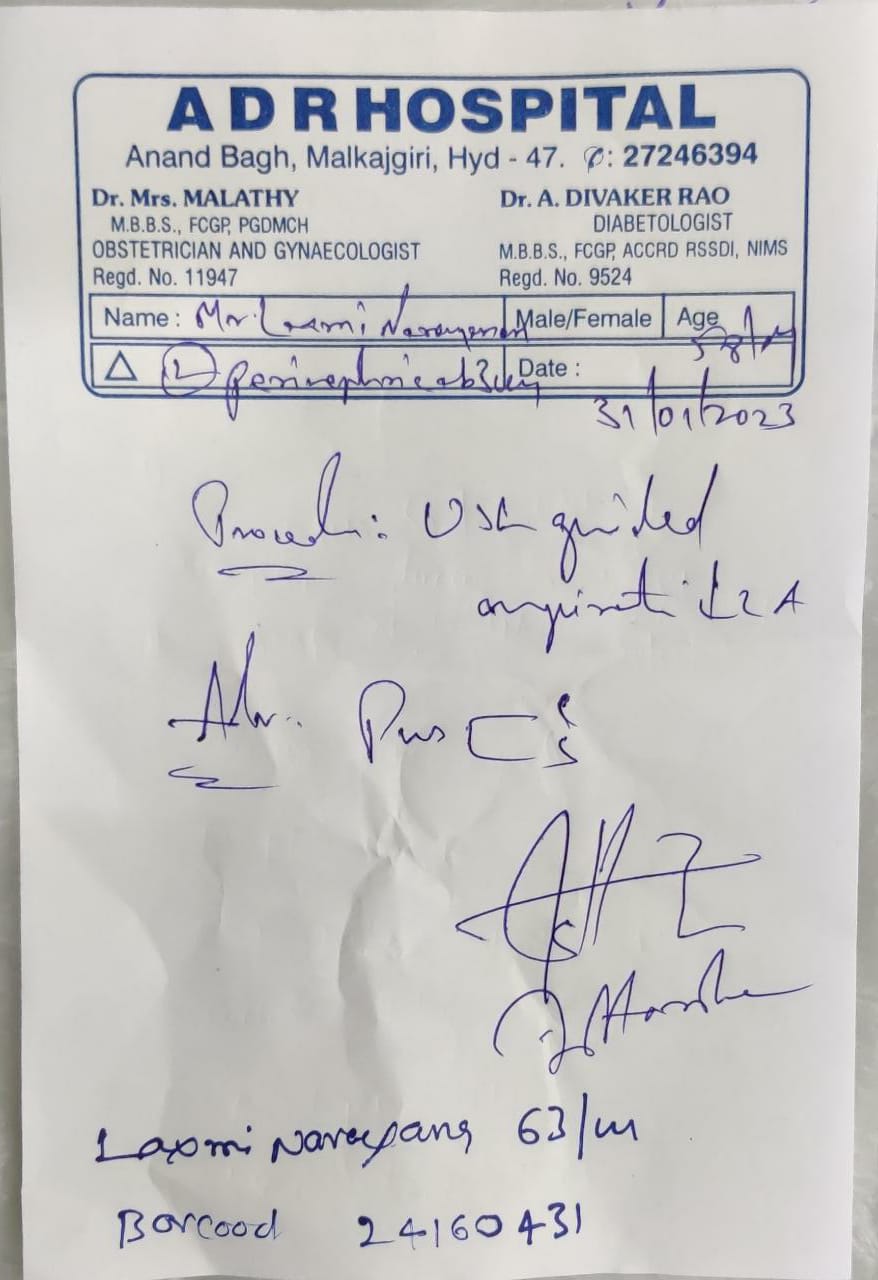 A D R HOSPITAL
Anand Bagh, Malkajgiri, Hyd - 47. ✆: 27246394
Dr. Mrs. MALATHY
M.B.B.S., FCGP, PGDMCH
OBSTETRICIAN AND GYNAECOLOGIST
Regd. No. 11947
Dr. A. DIVAKER RAO
DIABETOLOGIST
M.B.B.S., FCGP, ACCRD RSSDI, NIMS
Regd. No. 9524
Name : Mr. Laxmi Narayanan Male/Female Age 58/M
△ (L) perinephric Date : 31/01/2023
USG guided
LA
Adv: Pus C/S
Dr Harsha
Laxmi Narayana 63/M
Barcood 24160431